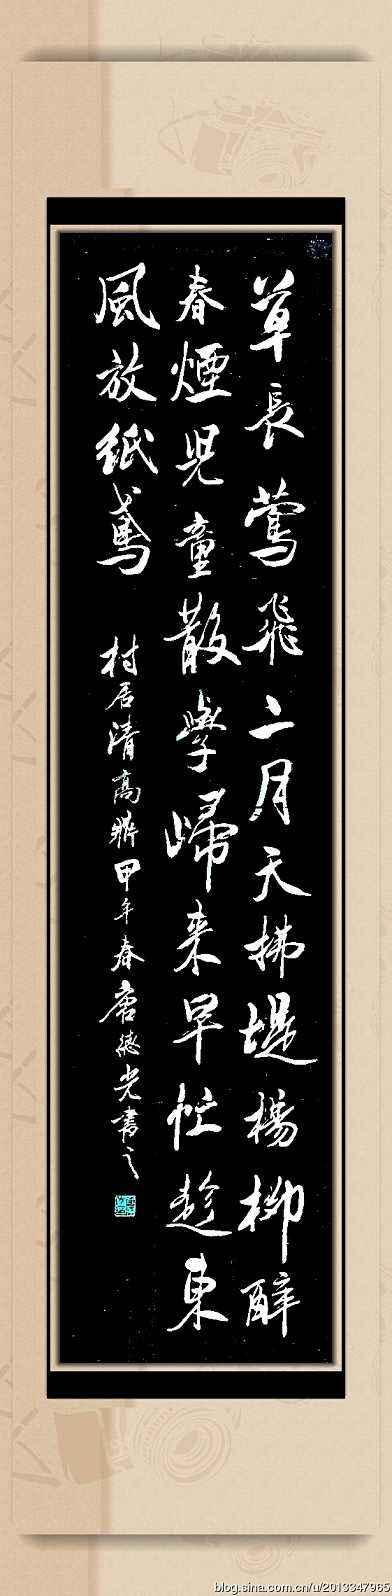 草長鶯飛二月天拂堤楊柳醉
春煙兒童散學歸来早忙趁東
風放紙鳶
村居清高鼎甲午春唐德光書之
blog.sina.com.cn/u/2013347965